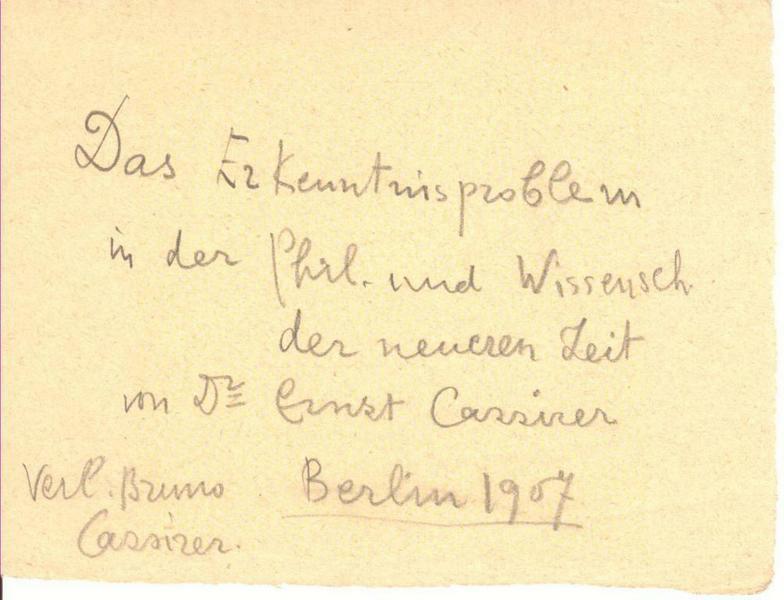 Das Erkenntnisproblem
in der Phil. und Wissensch.
der neueren Zeit
von Dr Ernst Cassirer
Verl. Bruno Berlin 1907
Cassirer.